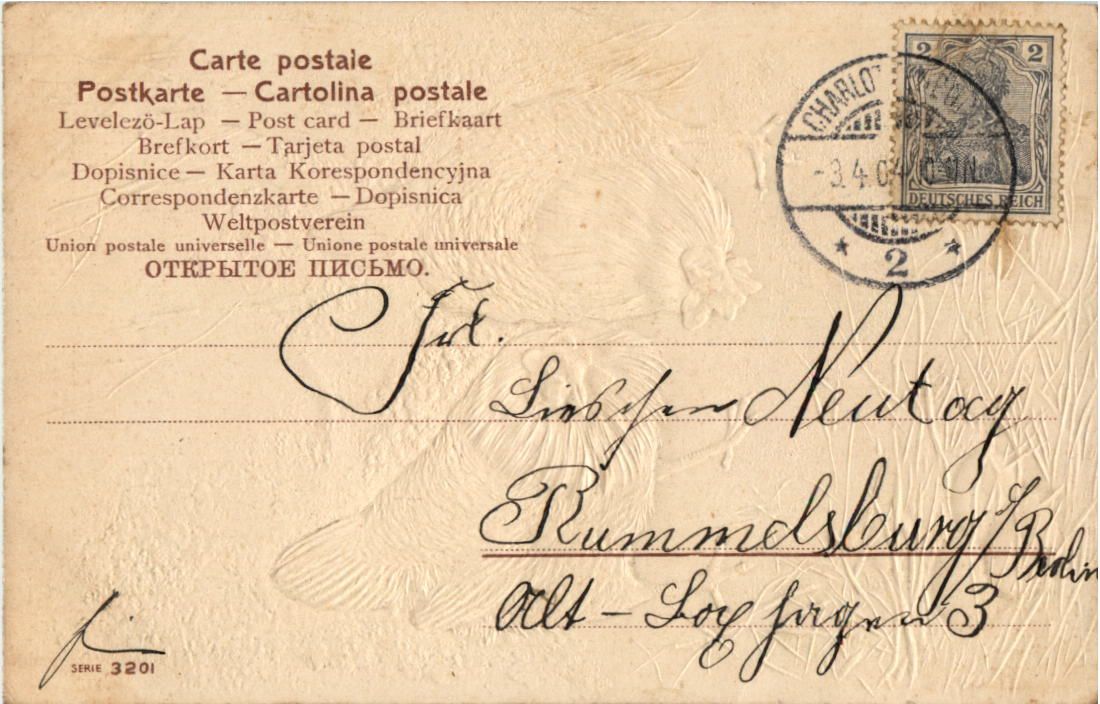 Carte postale
Postkarte — Cartolina postale
Levelezö-Lap — Post card — Briefkaart
Brefkort — Tarjeta postal
Dopisnice — Karta Korespondencyjna
Correspondenzkarte — Dopisnica
Weltpostverein
Union postale universelle — Unione postale universale
ОТКРЫТОЕ ПИСЬМО.
2 2
DEUTSCHES REICH
-3.4.04
2
Frl.
Lieschen Neutag
Rummelsburg / Berlin
Alt - Boxhagen 3
SERIE 3201